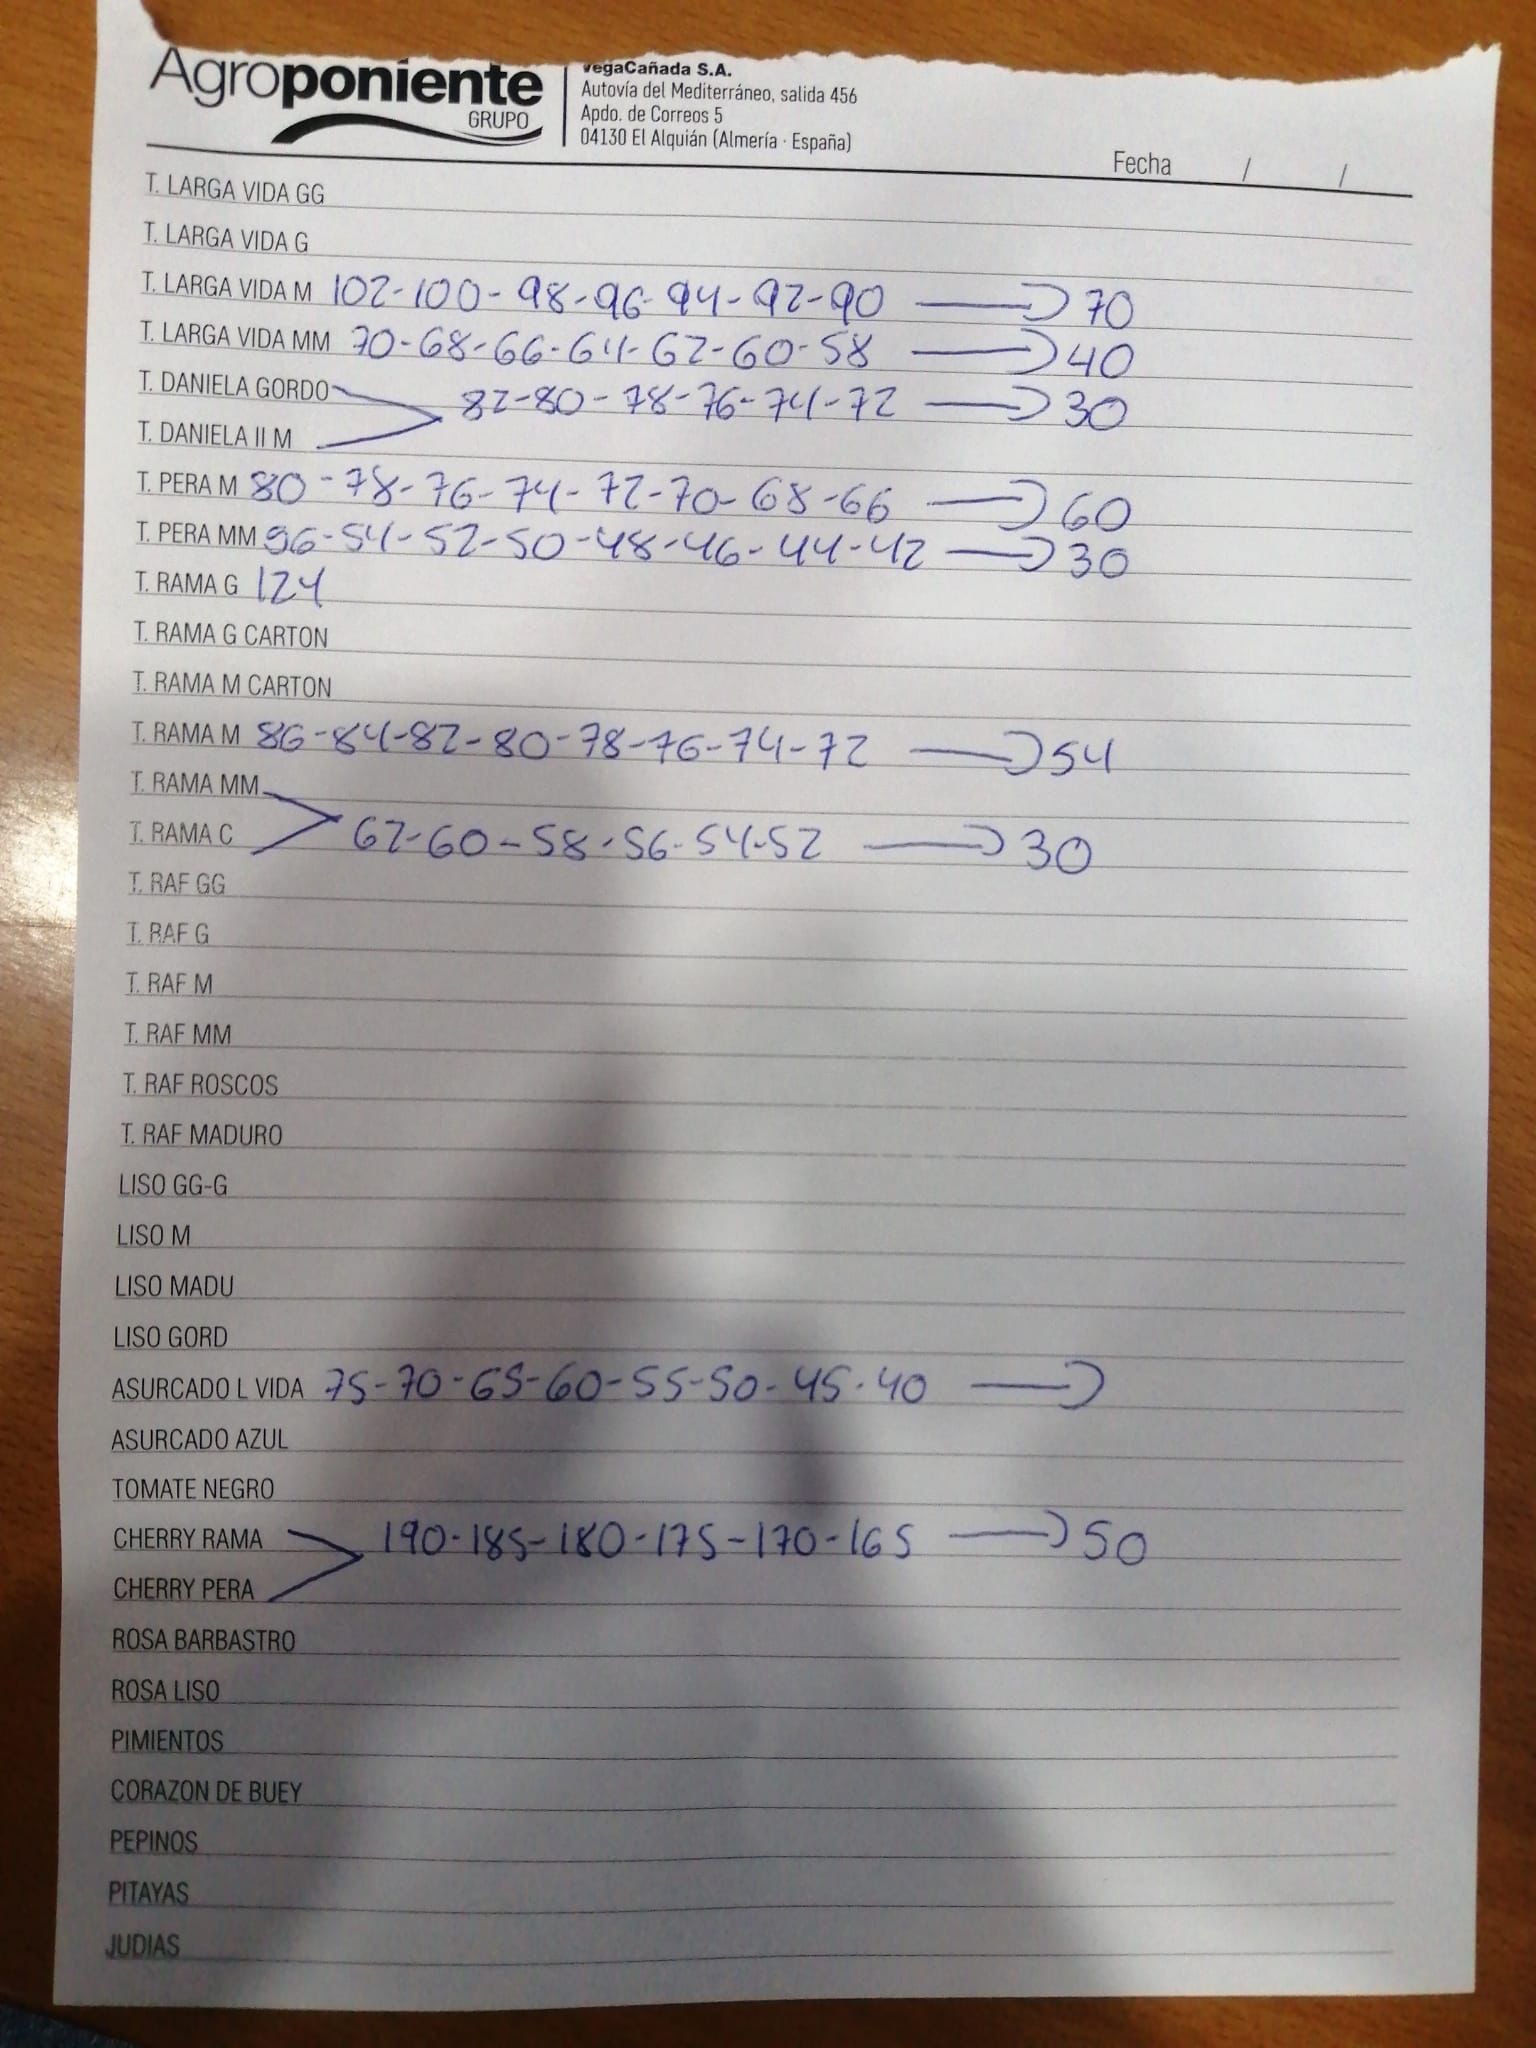 Agroponiente
GRUPO
VegaCañada S.A.
Autovía del Mediterráneo, salida 456
Apdo. de Correos 5
04130 El Alquián (Almería · España)
Fecha / /
T. LARGA VIDA GG
T. LARGA VIDA G
T. LARGA VIDA M 102-100-98-96-94-92-90 → 70
T. LARGA VIDA MM 70-68-66-64-62-60-58 → 40
T. DANIELA GORDO 82-80-78-76-74-72 → 30
T. DANIELA II M
T. PERA M 80-78-76-74-72-70-68-66 → 60
T. PERA MM 96-54-52-50-48-46-44-42 → 30
T. RAMA G 124
T. RAMA G CARTON
T. RAMA M CARTON
T. RAMA M 86-84-82-80-78-76-74-72 → 54
T. RAMA MM
T. RAMA C 62-60-58-56-54-52 → 30
T. RAF GG
T. RAF G
T. RAF M
T. RAF MM
T. RAF ROSCOS
T. RAF MADURO
LISO GG-G
LISO M
LISO MADU
LISO GORD
ASURCADO L VIDA 75-70-65-60-55-50-45-40 →
ASURCADO AZUL
TOMATE NEGRO
CHERRY RAMA 190-185-180-175-170-165 → 50
CHERRY PERA
ROSA BARBASTRO
ROSA LISO
PIMIENTOS
CORAZON DE BUEY
PEPINOS
PITAYAS
JUDIAS